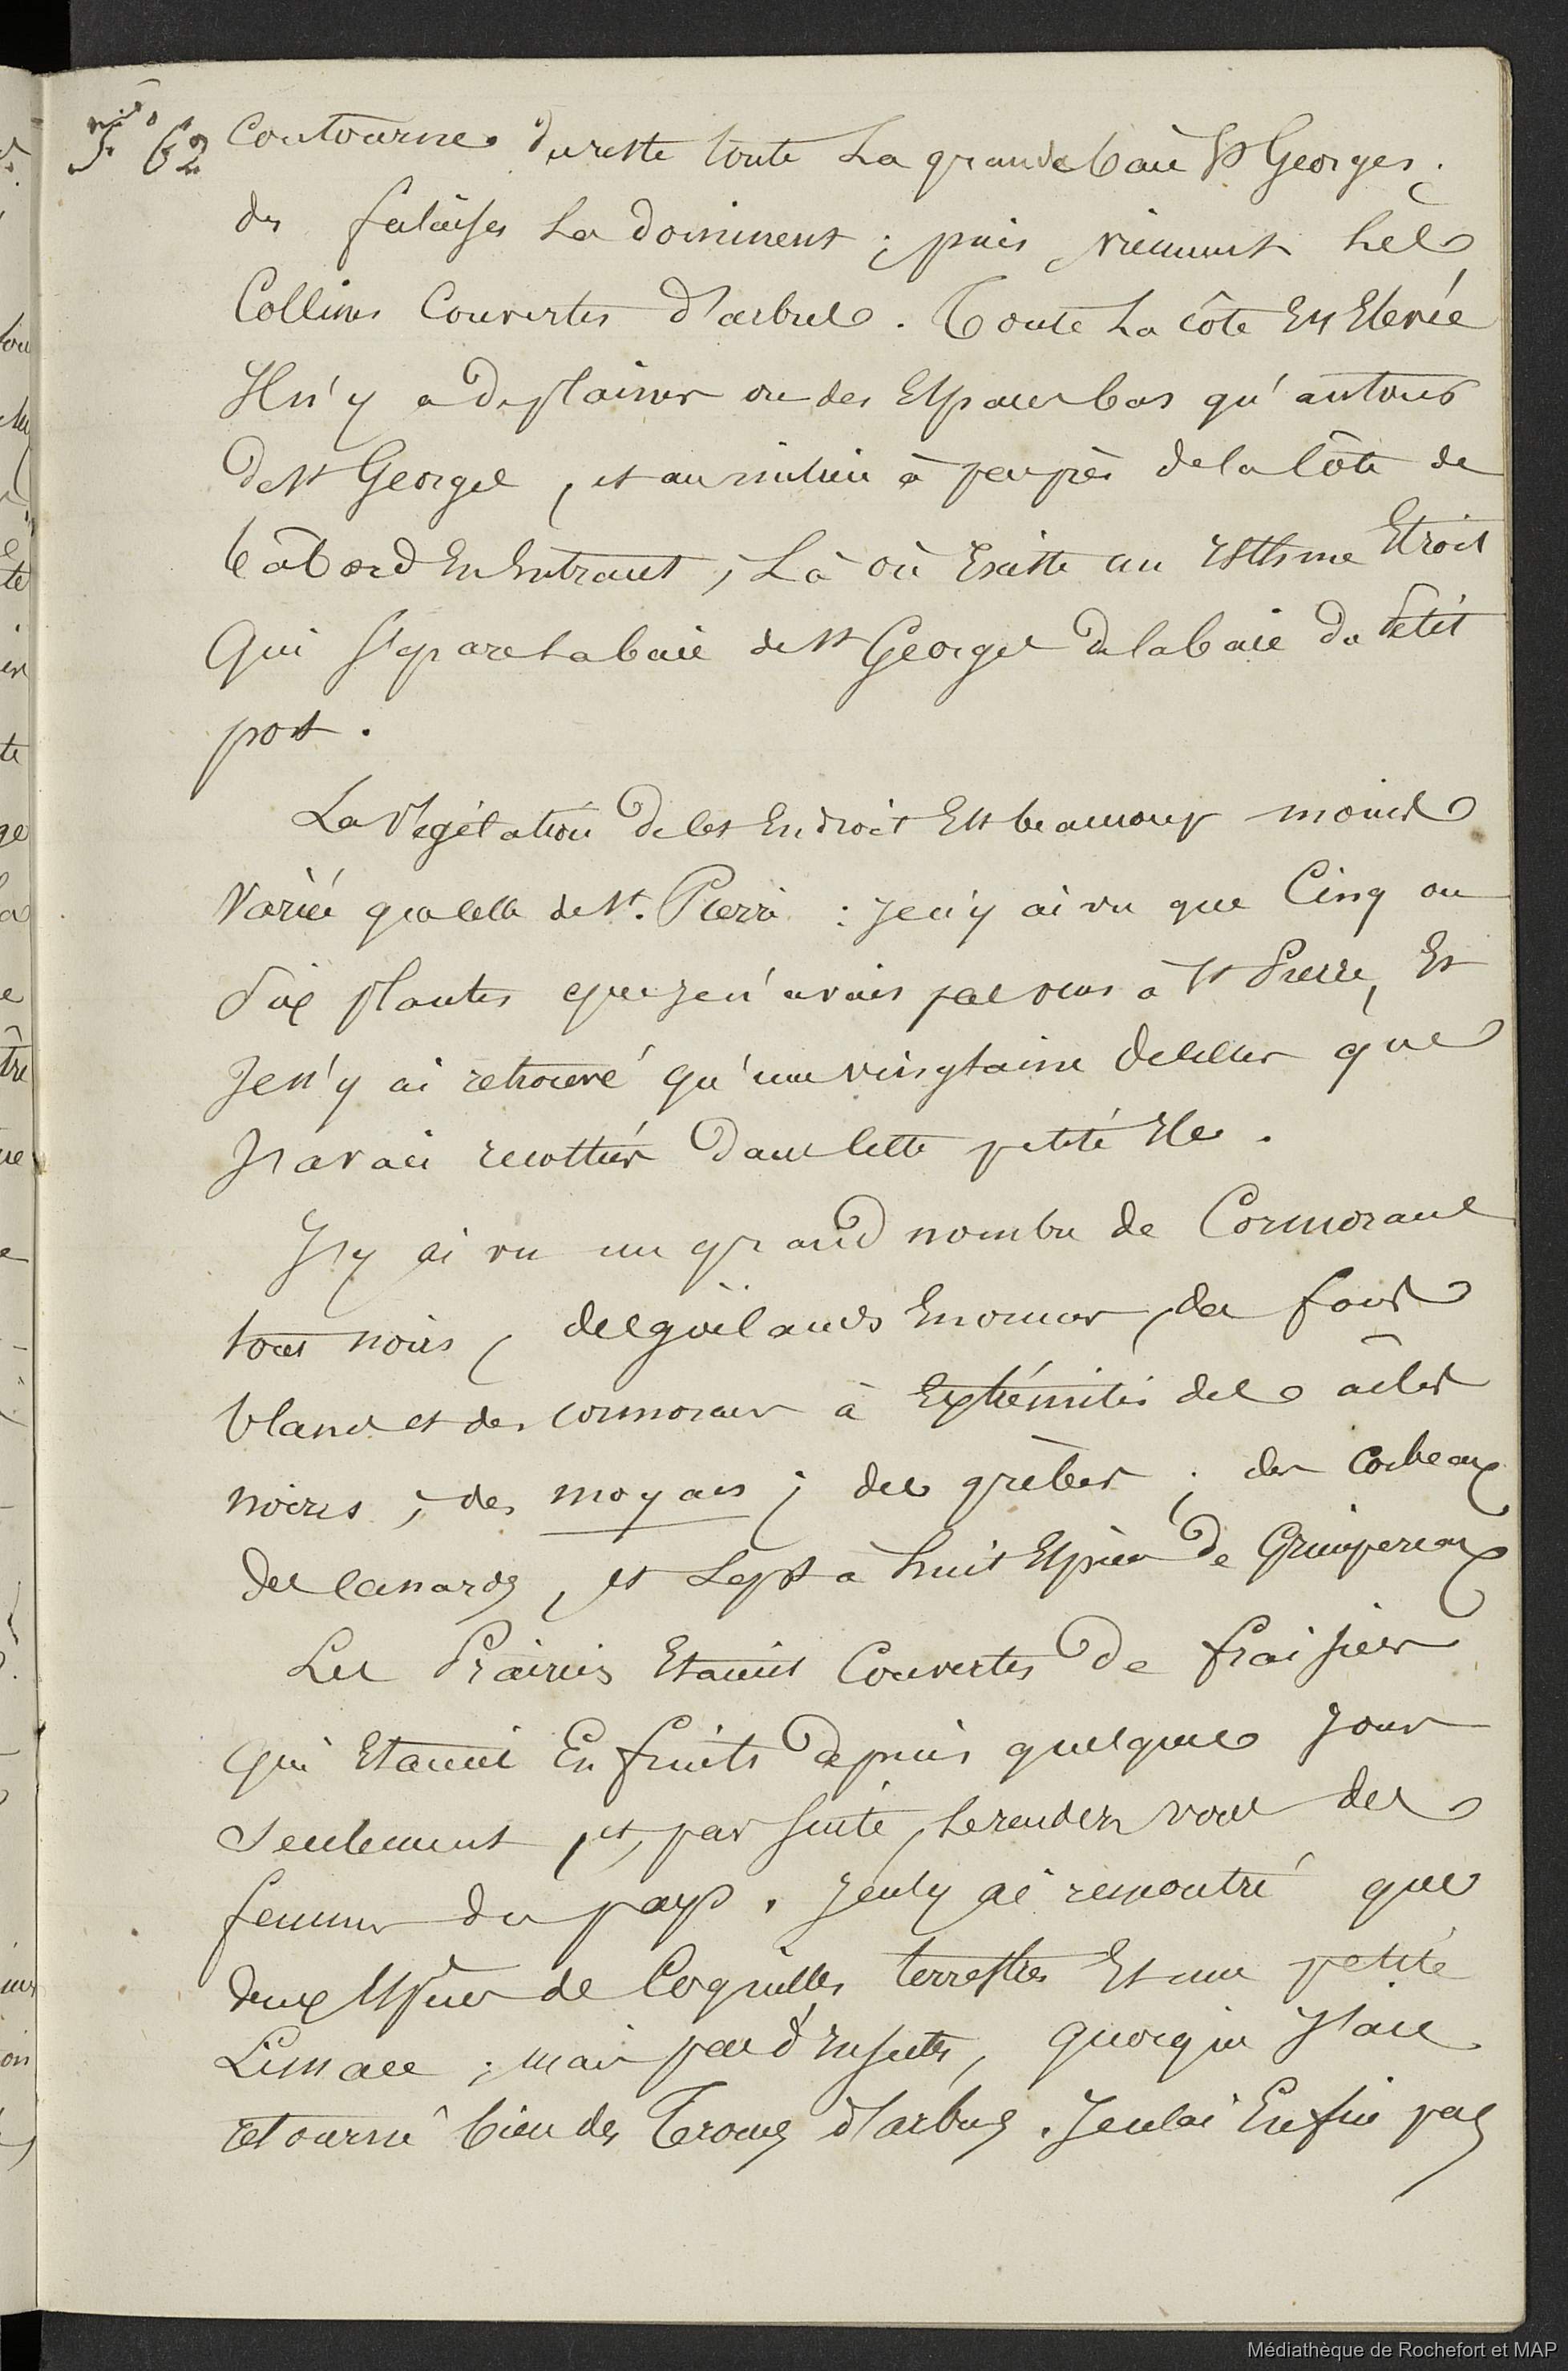 F° 62 Contourne du reste toute La grande baie St Georges.
des falaises La dominent ; puis viennent les
Collines Couvertes d'arbres. Toute La côte Est Elevée
Il n'y a de plaines ou des Espaces bas qu'autour
de St George, et au milieu à peu près de la Côte de
babord En Entrant, Là où Existe un Isthme Etroit
Qui Separe La baie de St George de la baie du Petit
port.
La Végétation de cet Endroit Est beaucoup moins
Variée que celle de St. Pierre : Je n'y ai vu que Cinq ou
Six plantes que Je n'avais pas vues à St Pierre, Et
Je n'y ai retrouvé qu'une vingtaine de celles que
J'avais recoltées dans cette petite Ile.
J'y ai vu un grand nombre de Cormorans
tout noirs, des goëlands Enormes, des fous
blancs et des cormorans à Extrémités des ailes
noires ; des moyacs ; des grèbes ; des Corbeaux
des Canards, et Sept à huit Espèces de Grimpereaux
Les Prairies Etaient Couvertes de fraisiers
Qui Etaient En fruits depuis quelques Jours
Seulement, et, par Suite, Le rendez vous des
femmes du pays. Je n'y ai rencontré que
deux Espèces de Coquilles terrestres Et une petite
Limace ; mais pas d'Insectes, quoique J'aie
retourné bien des Troncs d'arbres. Je n'ai Enfin pas
Médiathèque de Rochefort et MAP